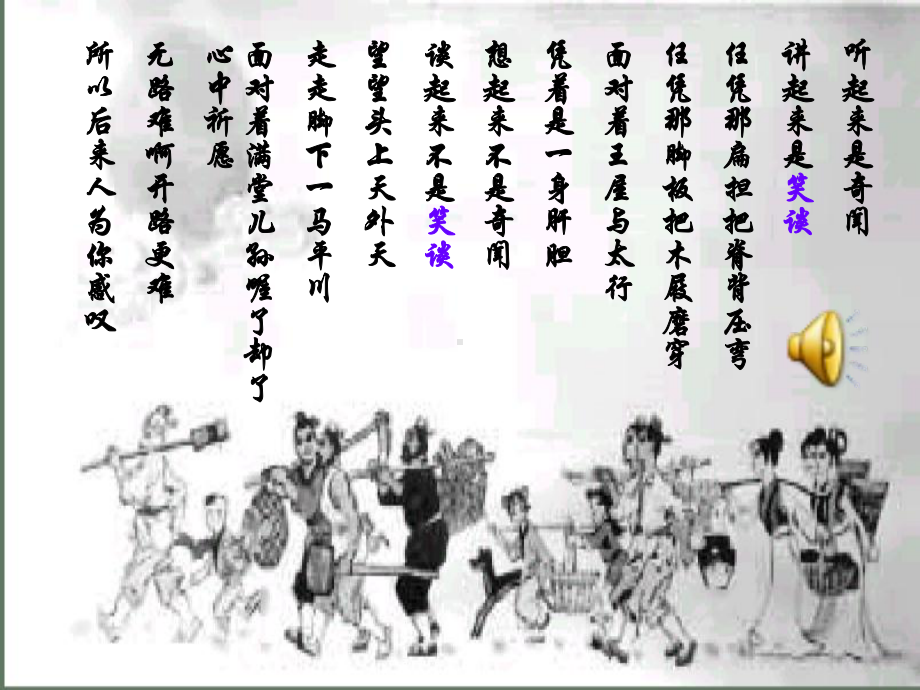 听起来是奇闻
讲起来是笑谈
任凭那扁担把脊背压弯
任凭那脚板把木屐磨穿
面对着王屋与太行
凭着是一身肝胆
想起来不是奇闻
谈起来不是笑谈
望望头上天外天
走走脚下一马平川
面对着满堂儿孙喔了却了
心中祈愿
无路难啊开路更难
所以后来人为你感叹